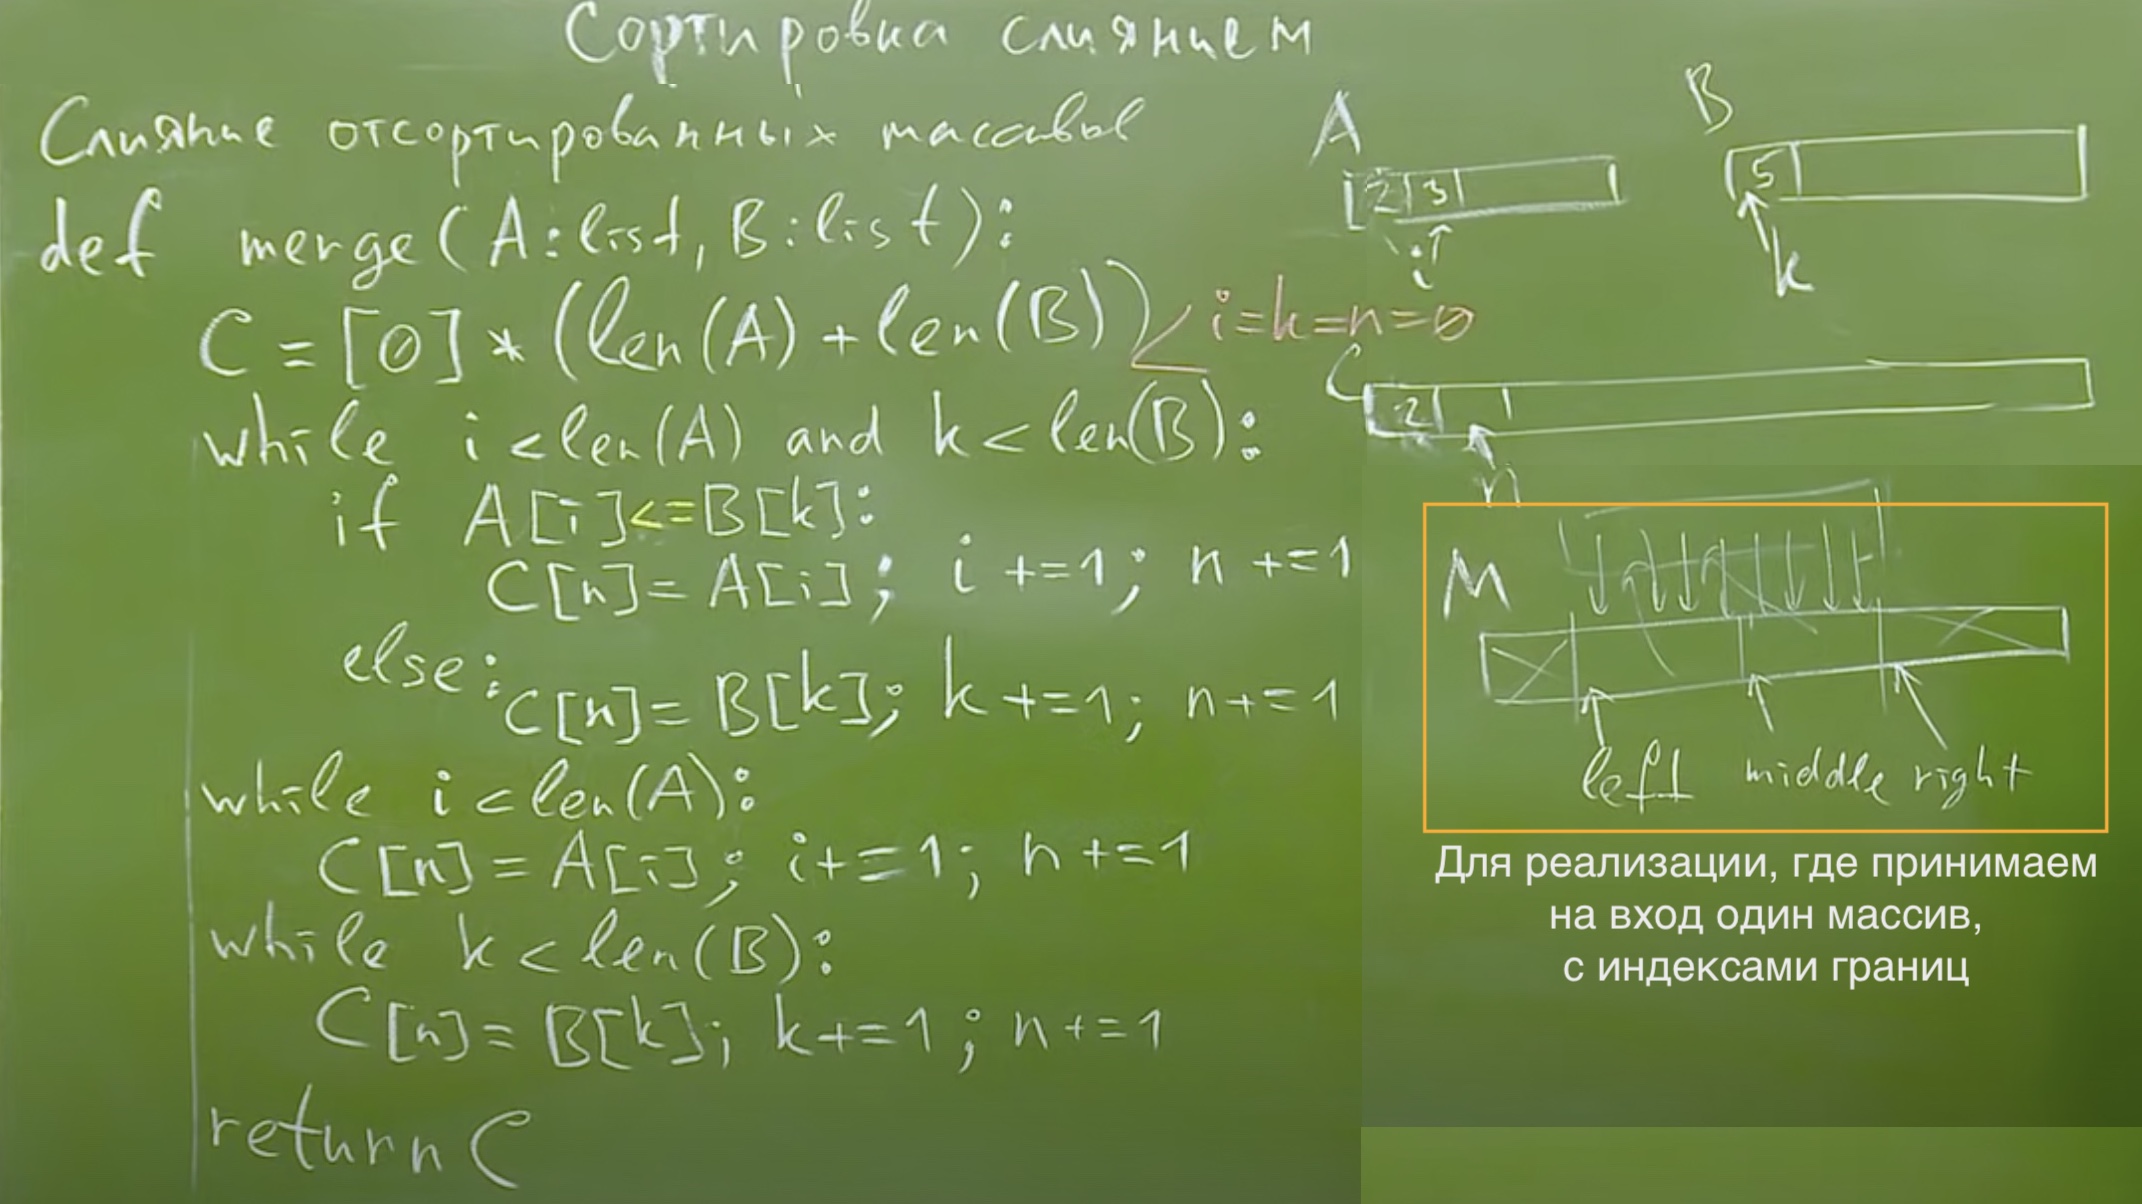 Сортировка слиянием
Слияние отсортированных массивов
def merge(A:list, B:list):
C = [0] * (len(A) + len(B))
i=k=n=0
while i<len(A) and k<len(B):
if A[i]<=B[k]:
C[n]=A[i]; i +=1; n +=1
else:
C[n]= B[k]; k +=1; n+=1
while i<len(A):
C[n]=A[i]; i+=1; n+=1
while k<len(B):
C[n]= B[k]; k+=1; n+=1
return C
A
2 3
i
B
5
k
C
2
n
M
left middle right
Для реализации, где принимаем
на вход один массив,
с индексами границ